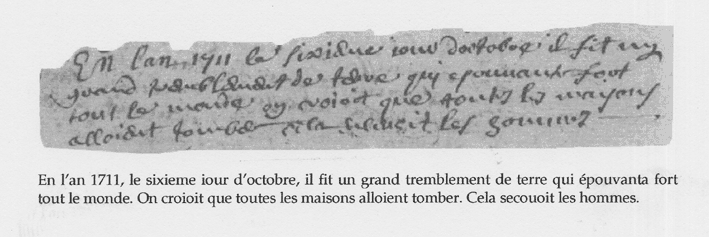 En l'an 1711 le sixieme iour doctobre il fit un
grand tremblement de terre qui epouvanta fort
tout le monde on croioit que toutes les maisons
alloient tomber cela secouoit les hommes
En l'an 1711, le sixieme iour d'octobre, il fit un grand tremblement de terre qui épouvanta fort
tout le monde. On croioit que toutes les maisons alloient tomber. Cela secouoit les hommes.